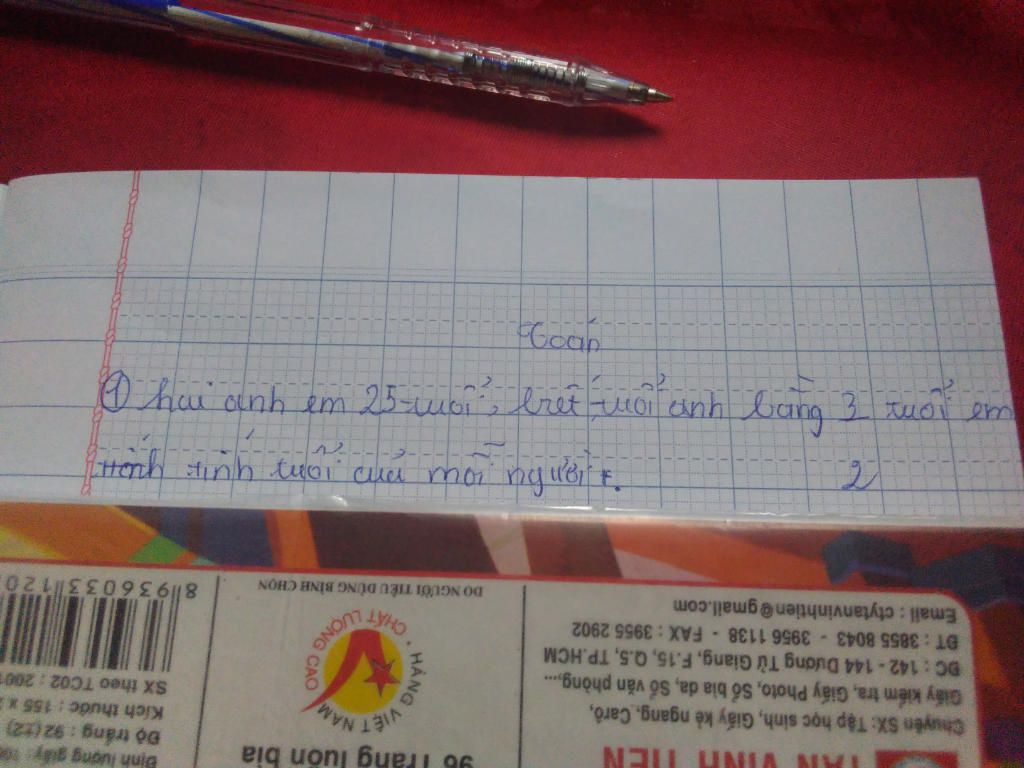 Toán
① hai anh em 25 tuổi, biết tuổi anh bằng 3 tuổi em
tính tuổi của mỗi người. 2
DO NGƯỜI TIÊU DÙNG BÌNH CHỌN
HÀNG VIỆT NAM
CHẤT LƯỢNG CAO
96 Trang luôn bìa
8 936033 120
SX theo TC02 : 2001
Kích thước : 155 x
Độ trắng : 92(±2)
Định lượng giấy :
TÂN VĨNH TIẾN
Chuyên SX: Tập học sinh, Giấy kẻ ngang, Carô,
Giấy kiểm tra, Giấy Photo, Sổ bìa da, Sổ văn phòng,...
ĐC : 142 - 144 Dương Tử Giang, F.15, Q.5, TP.HCM
ĐT : 3855 8043 - 3956 1138 - FAX : 3955 2902
Email : ctytanvinhtien@gmail.com